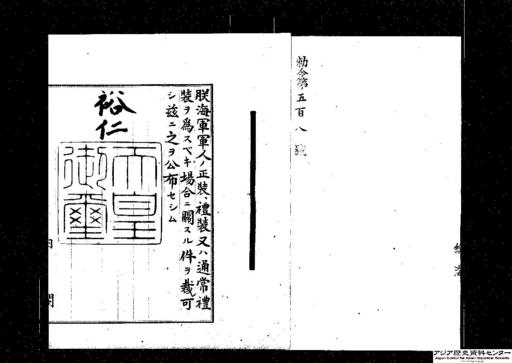 勅令第五百八號
朕海軍軍人ノ正裝、禮裝又ハ通常禮
裝ヲ爲スベキ場合ニ關スル件ヲ裁可
シ茲ニ之ヲ公布セシム
裕仁
天皇
御璽
内閣
アジア歴史資料センター
Japan Center for Asian Historical Records